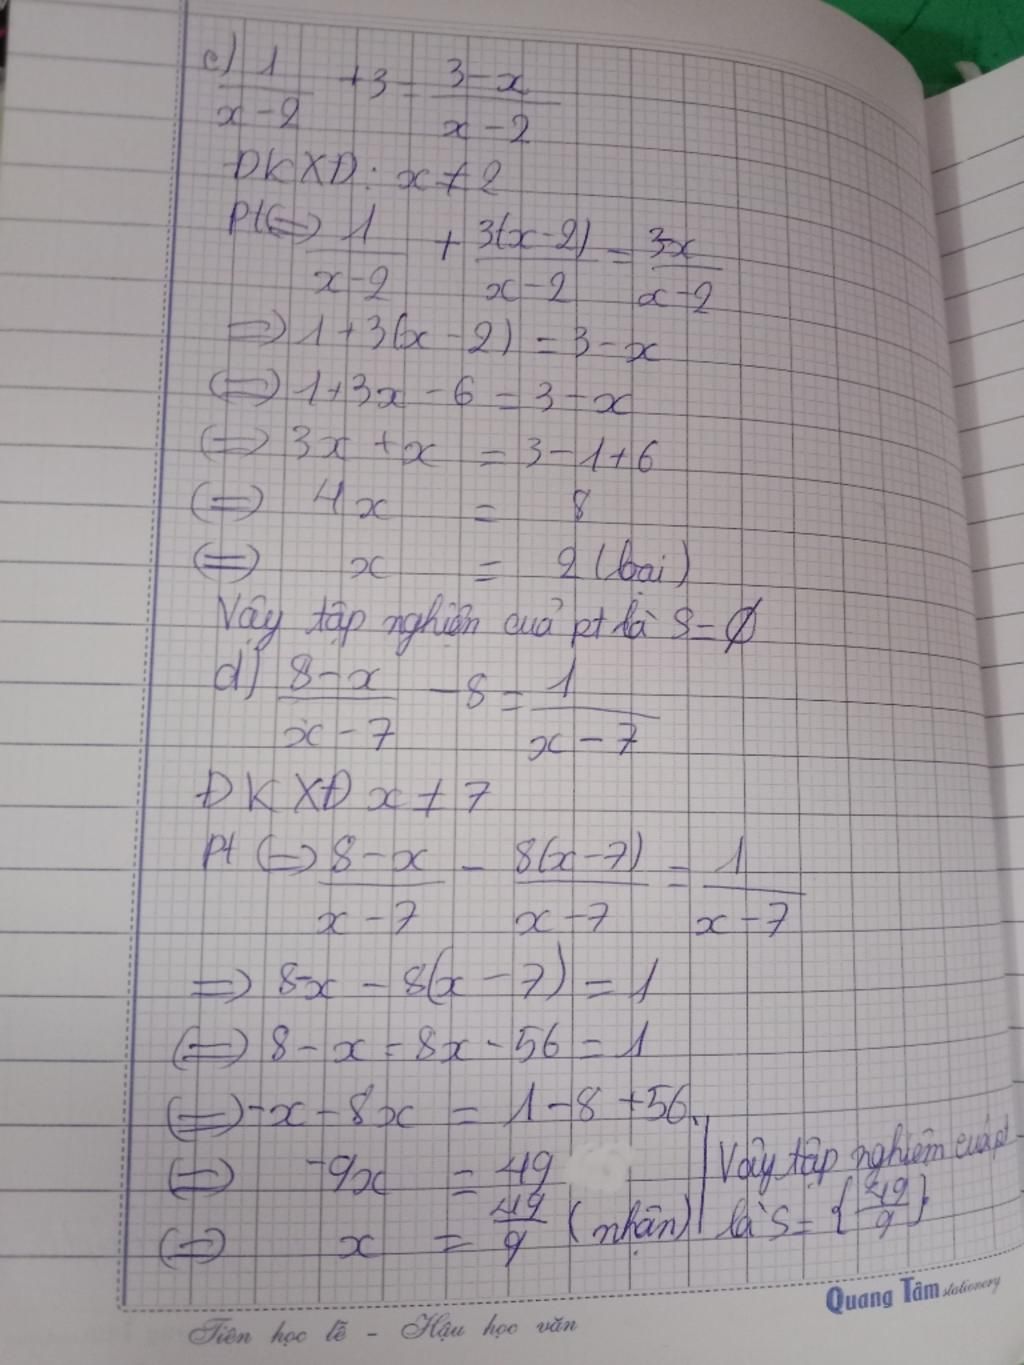 c) 1/(x-2) + 3 = (3-x)/(x-2)
ĐKXĐ: x ≠ 2
Pt (=) 1/(x-2) + 3(x-2)/(x-2) = 3x/(x-2)
=) 1+3(x-2) = 3-x
(=) 1+3x-6 = 3-x
(=) 3x+x = 3-1+6
(=) 4x = 8
(=) x = 2 (loại)
Vậy tập nghiệm cuả pt là S=∅
d) (8-x)/(x-7) - 8 = 1/(x-7)
ĐKXĐ x ≠ 7
Pt (=) (8-x)/(x-7) - 8(x-7)/(x-7) = 1/(x-7)
=) 8-x - 8(x-7) = 1
(=) 8-x = 8x-56 = 1
(=) -x-8x = 1-8+56
(=) -9x = 49
(=) x = 49/9 (nhận)
Vậy tập nghiệm cuả pt
là S={49/9}
Quang Tâm stationery
Tiên học lễ - Hậu học văn